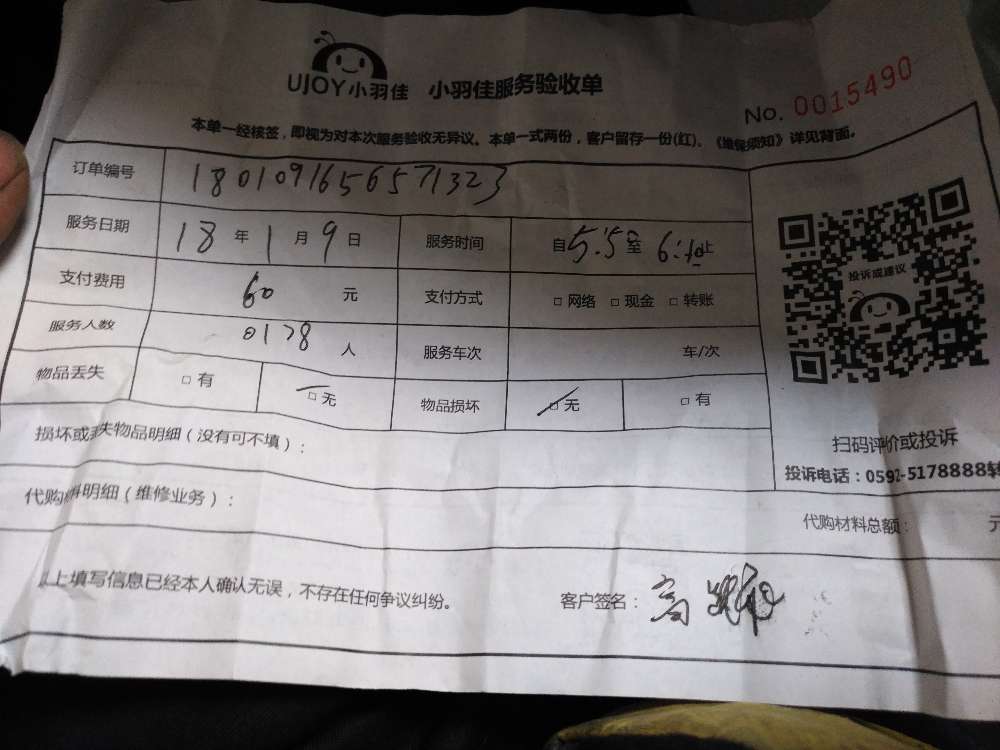 UJOY小羽佳 小羽佳服务验收单
No. 0015490
本单一经核签，即视为对本次服务验收无异议。本单一式两份，客户留存一份(红)。《维保须知》详见背面。
订单编号 1801091656571323
服务日期 18 年 1 月 9 日 服务时间 自 5:5 至 6: 止
支付费用 60 元 支付方式 □ 网络 □ 现金 □ 转账
服务人数 0178 人 服务车次 车/次
物品丢失 □ 有 □ 无 物品损坏 □ 无 □ 有
投诉或建议
扫码评价或投诉
投诉电话：0592-5178888转
损坏或丢失物品明细（没有可不填）：
代购材料明细（维修业务）：
代购材料总额： 元
以上填写信息已经本人确认无误，不存在任何争议纠纷。 客户签名：高